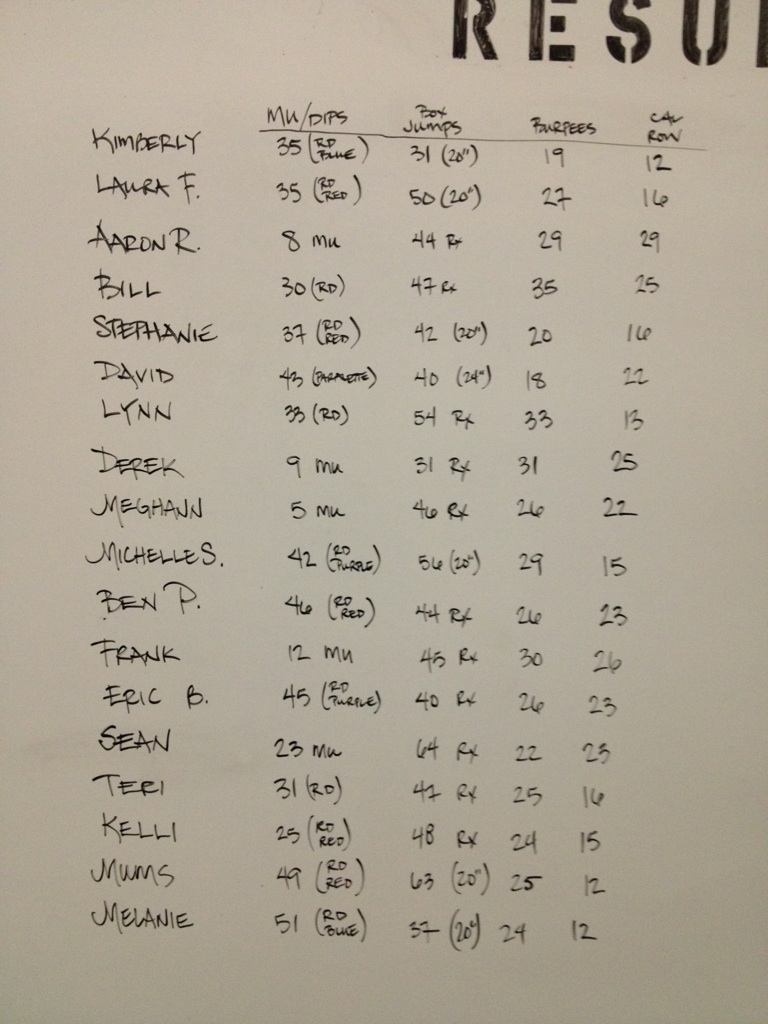 RESU
MU/DIPS BOX JUMPS BURPEES CAL ROW
KIMBERLY 35 (RD BLUE) 31 (20") 19 12
LAURA F. 35 (RD RED) 50 (20") 27 16
AARON R. 8 MU 44 RX 29 29
BILL 30 (RD) 47 RX 35 25
STEPHANIE 37 (RD RED) 42 (20") 20 16
DAVID 43 (PARALETTE) 40 (24") 18 22
LYNN 33 (RD) 54 RX 33 13
DEREK 9 MU 31 RX 31 25
MEGHANN 5 MU 46 RX 26 22
MICHELLE S. 42 (RD PURPLE) 56 (20") 29 15
BEN P. 46 (RD RED) 44 RX 26 23
FRANK 12 MU 45 RX 30 26
ERIC B. 45 (RD PURPLE) 40 RX 26 23
SEAN 23 MU 64 RX 22 23
TERI 31 (RD) 47 RX 25 16
KELLI 25 (RD RED) 48 RX 24 15
MUMS 49 (RD RED) 63 (20") 25 12
MELANIE 51 (RD BLUE) 37 (20") 24 12